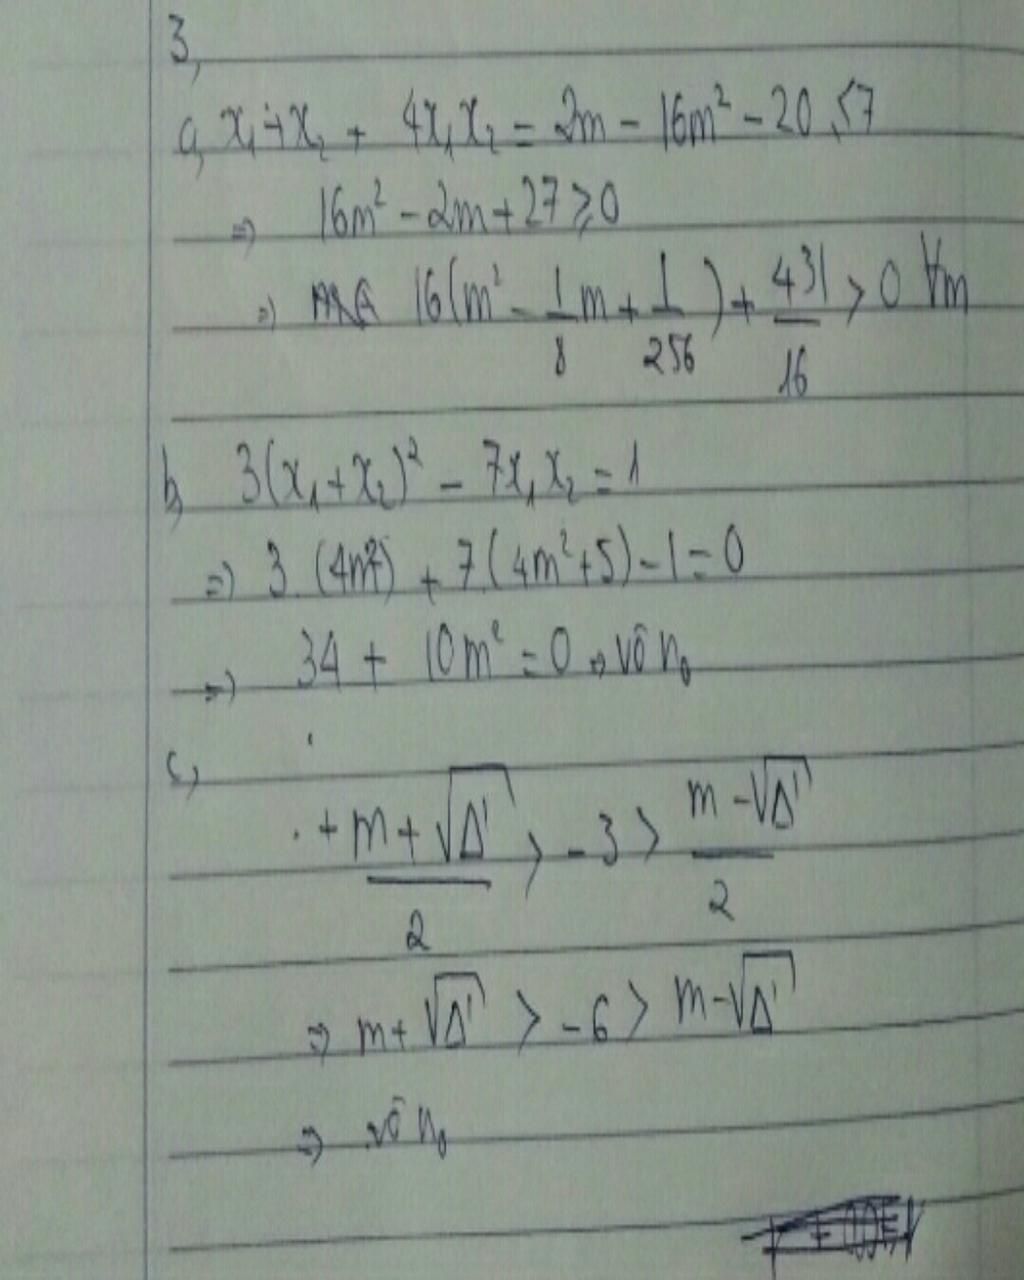 3,
a, x₁ + x₂ + 4x₁x₂ = 2m - 16m² - 20 ≤ 7
=> 16m² - 2m + 27 ≥ 0
=> 16(m² - 1/8 m + 1/256) + 431/16 > 0 ∀m
b, 3(x₁ + x₂)² - 7x₁x₂ = 1
=> 3.(4m²) + 7.(4m² + 5) - 1 = 0
=> 34 + 10m² = 0 => vô n₀
c,
+ m + √Δ' / 2 > -3 > m - √Δ' / 2
=> m + √Δ' > -6 > m - √Δ'
=> vô n₀